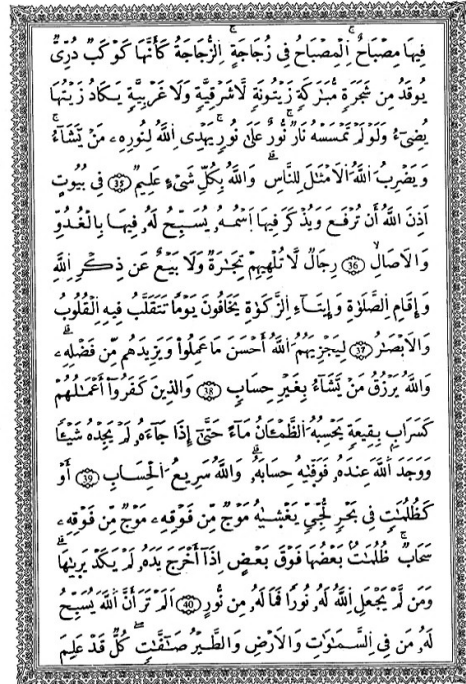 فِيهَا مِصْبَاحٌ ۖ اَلْمِصْبَاحُ فِى زُجَاجَةٍ ۖ اَلزُّجَاجَةُ كَأَنَّهَا كَوْكَبٌ دُرِّىٌّ
يُوقَدُ مِن شَجَرَةٍ مُّبَٰرَكَةٍ زَيْتُونَةٍ لَّا شَرْقِيَّةٍ وَلَا غَرْبِيَّةٍ يَكَادُ زَيْتُهَا
يُضِىٓءُ وَلَوْ لَمْ تَمْسَسْهُ نَارٌ ۚ نُّورٌ عَلَىٰ نُورٍ ۗ يَهْدِى اللَّهُ لِنُورِهِۦ مَنْ يَّشَآءُ ۚ
وَيَضْرِبُ اللَّهُ الْأَمْثَٰلَ لِلنَّاسِ ۗ وَاللَّهُ بِكُلِّ شَىْءٍ عَلِيمٌ 35 فِى بُيُوتٍ
اَذِنَ اللَّهُ أَن تُرْفَعَ وَيُذْكَرَ فِيهَا اسْمُهُۥ يُسَبِّحُ لَهُۥ فِيهَا بِالْغُدُوِّ
وَالْاَصَالِ 36 رِجَالٌ لَّا تُلْهِيهِمْ تِجَٰرَةٌ وَلَا بَيْعٌ عَن ذِكْرِ اللَّهِ
وَإِقَامِ الصَّلَوٰةِ وَإِيتَآءِ الزَّكَوٰةِ يَخَافُونَ يَوْمًا تَتَقَلَّبُ فِيهِ الْقُلُوبُ
وَالْاَبْصَٰرُ 37 لِيَجْزِيَهُمُ اللَّهُ أَحْسَنَ مَا عَمِلُواْ وَيَزِيدَهُم مِّن فَضْلِهِۦ ۗ
وَاللَّهُ يَرْزُقُ مَنْ يَّشَآءُ بِغَيْرِ حِسَابٍ 38 وَالَّذِينَ كَفَرُوٓاْ أَعْمَٰلُهُمْ
كَسَرَابٍ بِقِيعَةٍ يَحْسَبُهُ الظَّمْـَٔانُ مَآءً حَتَّىٰٓ إِذَا جَآءَهُۥ لَمْ يَجِدْهُ شَيْـًٔا
وَوَجَدَ اللَّهَ عِندَهُۥ فَوَفَّىٰهُ حِسَابَهُۥ ۗ وَاللَّهُ سَرِيعُ الْحِسَابِ 39 أَوْ
كَظُلُمَٰتٍ فِى بَحْرٍ لُّجِّىٍّ يَغْشَىٰهُ مَوْجٌ مِّن فَوْقِهِۦ مَوْجٌ مِّن فَوْقِهِۦ
سَحَابٌ ۚ ظُلُمَٰتٌ بَعْضُهَا فَوْقَ بَعْضٍ إِذَآ أَخْرَجَ يَدَهُۥ لَمْ يَكَدْ يَرَىٰهَا ۗ
وَمَن لَّمْ يَجْعَلِ اللَّهُ لَهُۥ نُورًا فَمَا لَهُۥ مِن نُّورٍ 40 اَلَمْ تَرَ أَنَّ اللَّهَ يُسَبِّحُ
لَهُۥ مَن فِى السَّمَٰوَٰتِ وَالْاَرْضِ وَالطَّيْرُ صَٰٓفَّٰتٍ ۖ كُلٌّ قَدْ عَلِمَ